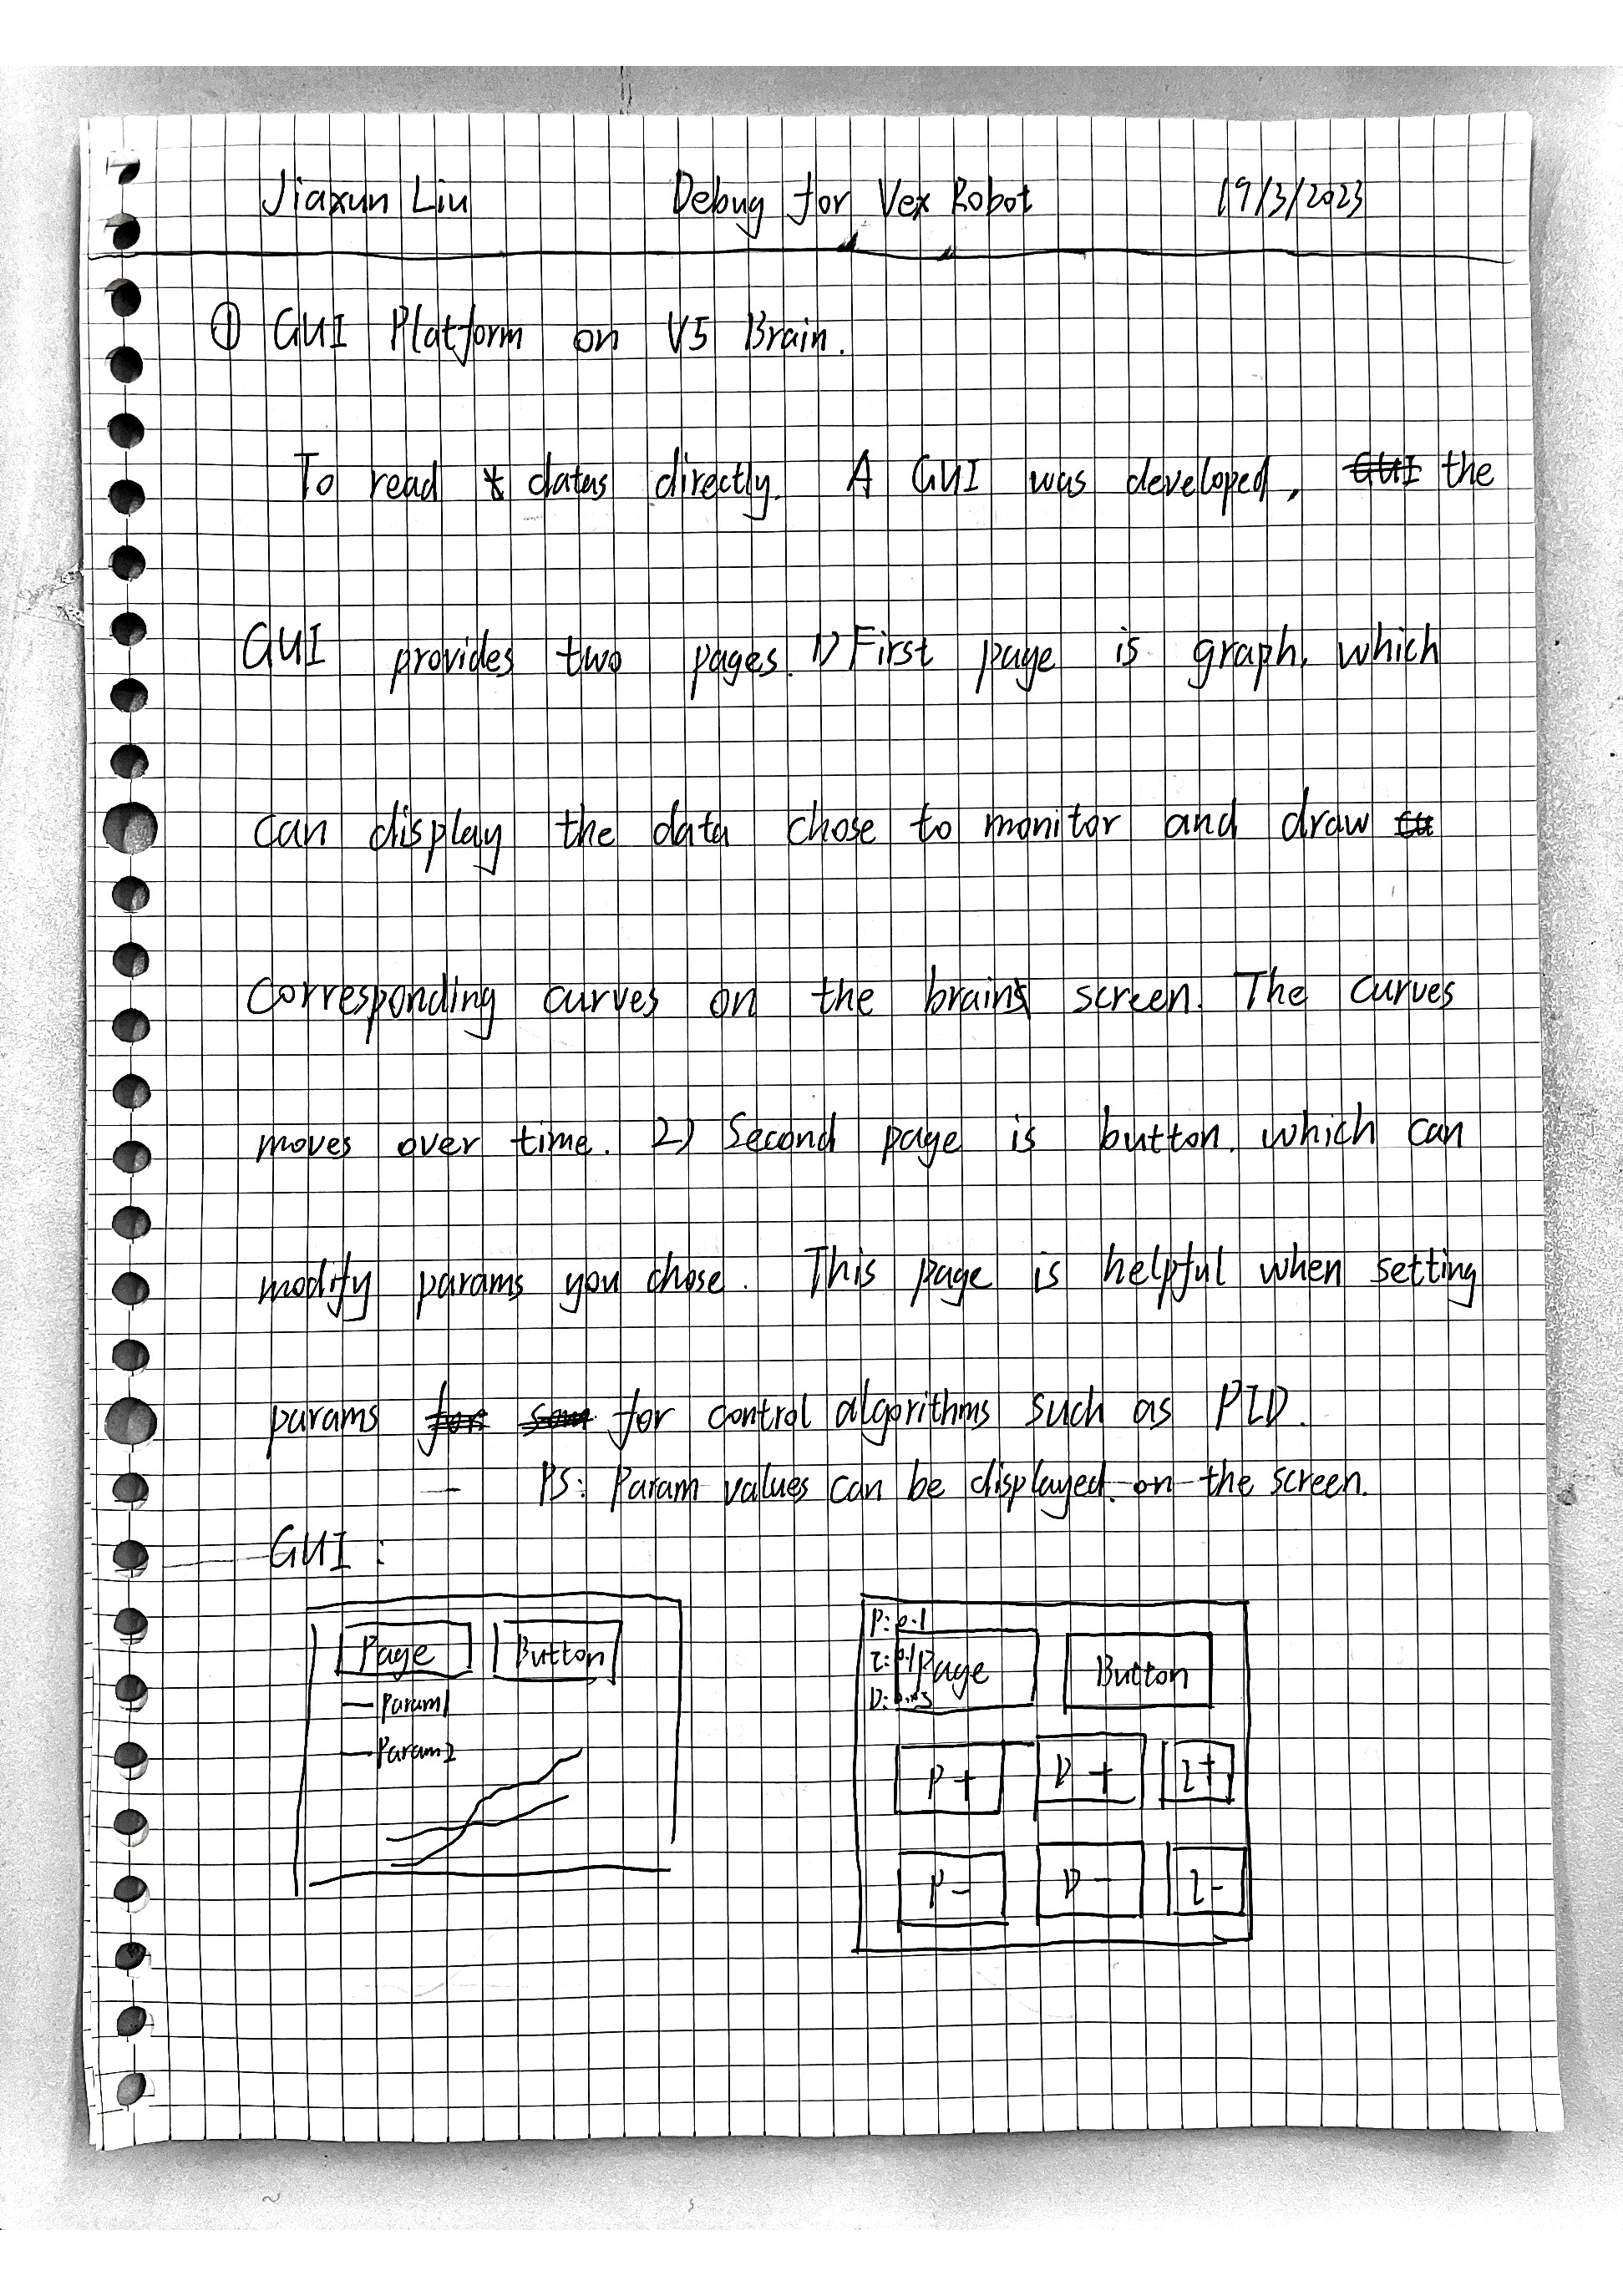 Jiaxun Liu Debug for Vex Robot 19/3/2023
① GUI Platform on V5 Brain.
To read datas directly. A GUI was developed, the
GUI provides two pages. 1) First page is graph, which
can display the data chose to monitor and draw
corresponding curves on the brain's screen. The curves
moves over time. 2) Second page is button, which can
modify params you chose. This page is helpful when setting
params for control algorithms such as PID.
— PS: Param values can be displayed on the screen.
GUI:
Page Button
— Param1
— Param2
P: 0.1
I: 0.1
Page Button
P+ D+ I+
P- D- I-